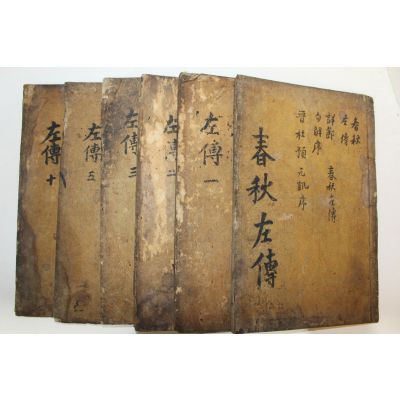 春秋
左傳
詳節
句解序
春秋左傳
晉杜預元凱序
春秋左傳
左傳 一
左傳 二
左傳 三
左傳 五
左傳 十